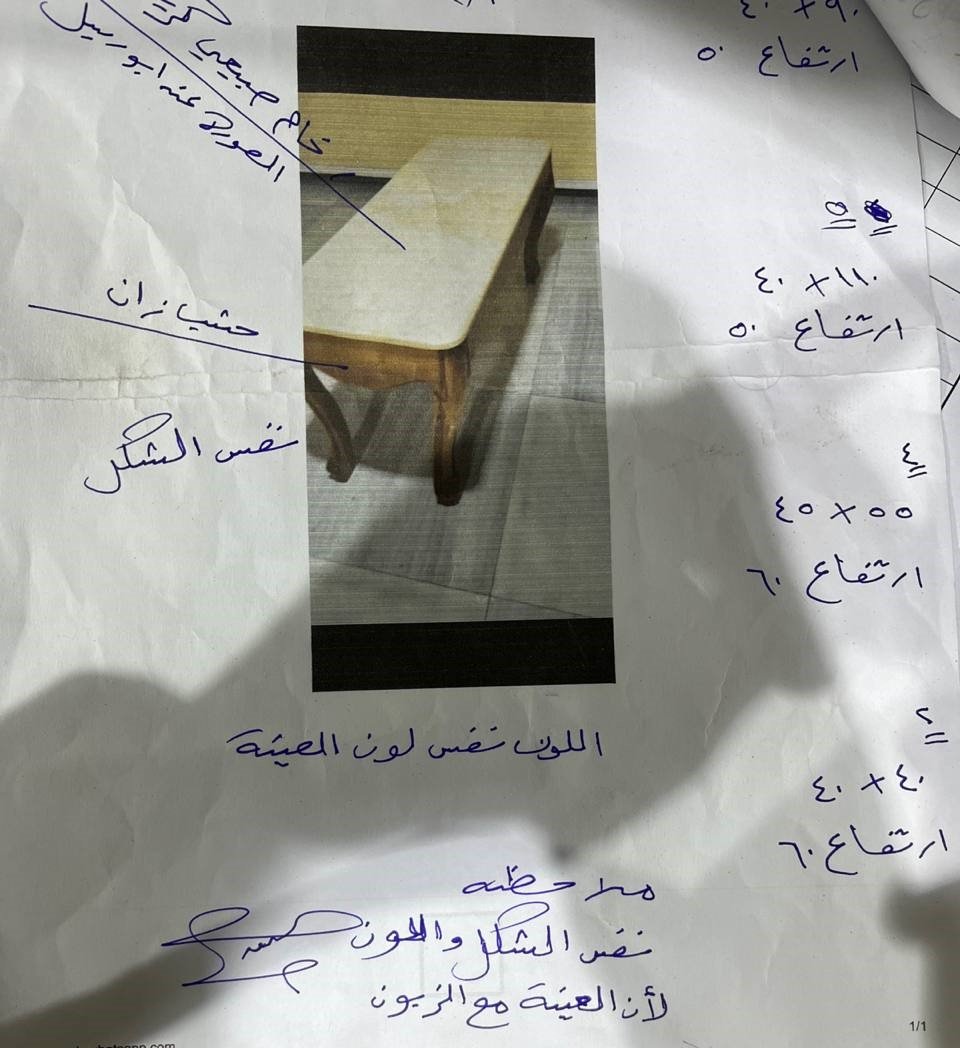 ٩٠ × ٤٠
ارتفاع ٥٠
٥
١١٠ × ٤٠
ارتفاع ٥٠
٤
٥٥ × ٤٥
ارتفاع ٦٠
٢
٤٠ × ٤٠
ارتفاع ٦٠
خام طبيعي
الصورة عند ابو
خشب زان
نفس الشكل
اللون نفس لون العينة
ملاحظه
نفس الشكل واللون
لأن العينة مع الزبون
1/1